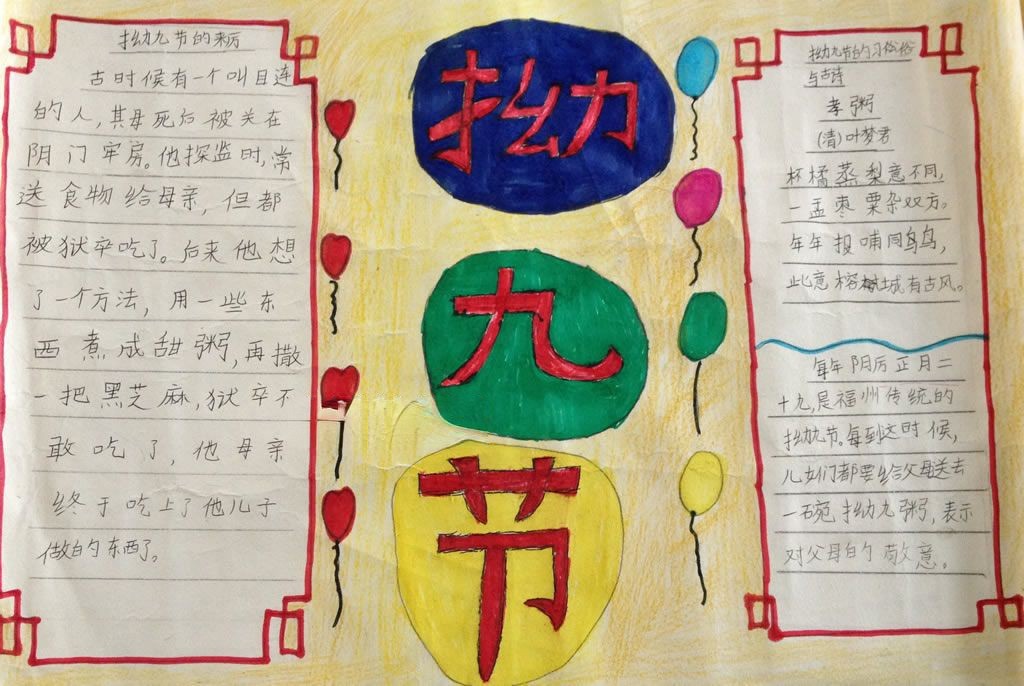 拗九节的来历
古时候有一个叫目连
的人,其母死后被关在
阴门牢房。他探监时,常
送食物给母亲,但都
被狱卒吃了。后来他想
了一个方法,用一些东
西煮成甜粥,再撒
一把黑芝麻,狱卒不
敢吃了,他母亲
终于吃上了他儿子
做的东西了。
拗
九
节
拗九节的习俗
与古诗
孝粥
(清)叶梦君
杯橘蒸梨意不同,
一盂枣栗杂双方。
年年报哺同乌鸟,
此意榕城有古风。
每年阴历正月二
十九,是福州传统的
拗九节。每到这时候,
儿女们都要给父母送去
一碗拗九粥,表示
对父母的敬意。